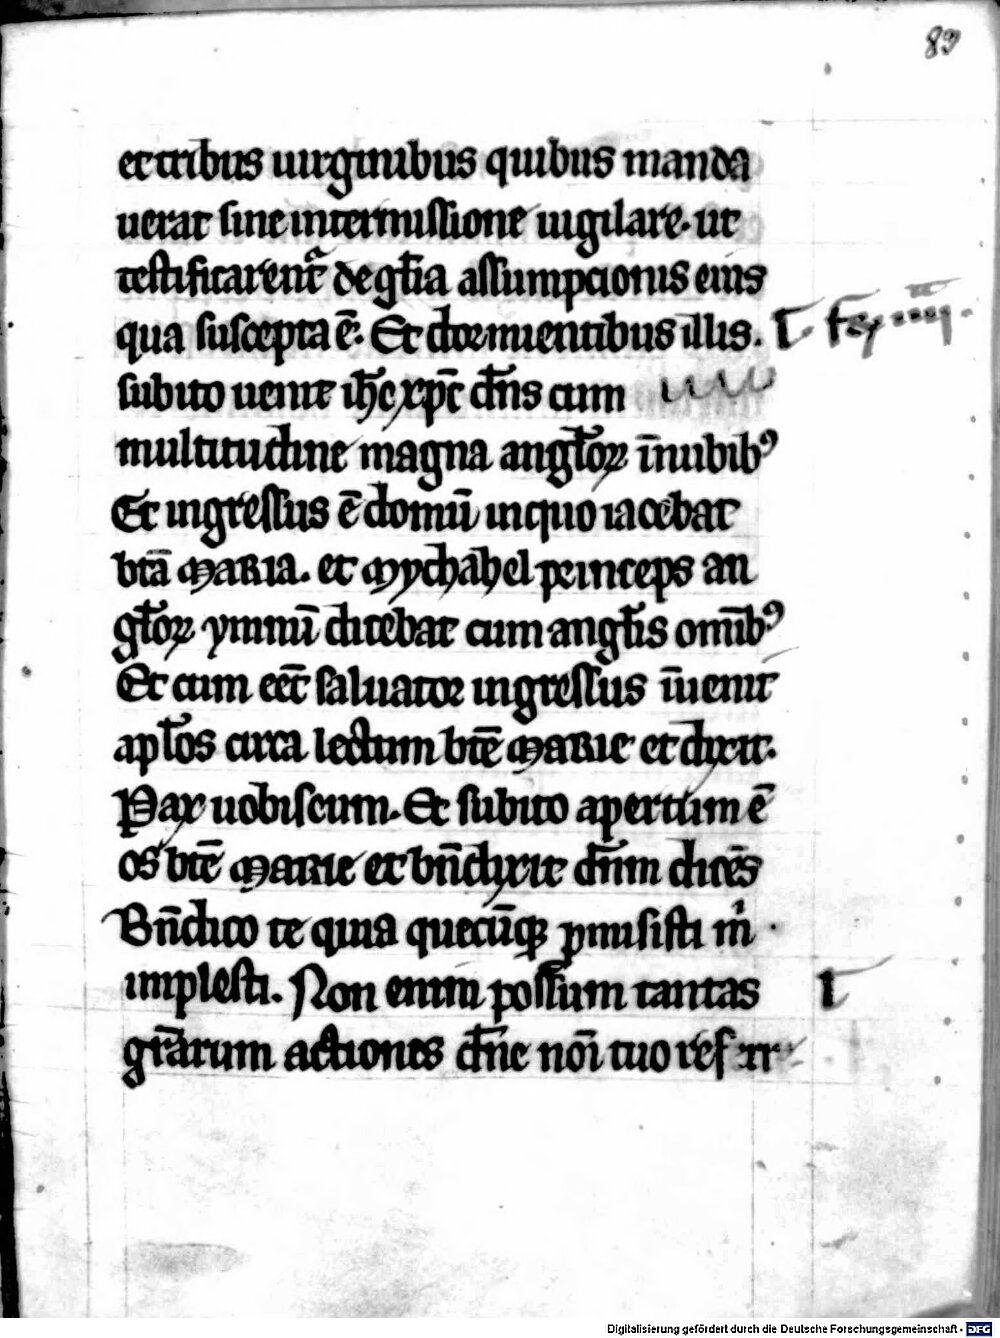 89
et tribus uirginibus quibus manda
uerat sine intermissione uigilare. ut
testificarent᷑ de gl̄ia assumpcionis eius
qua suscepta ē. Et dormientibus illis.
subito uenit ih̄c xp̄c dn̄s cum
multitudine magna angl̄oꝝ īnubibꝰ
Et ingressus ē domū inquo iacebat
btā maria. et mychahel princeps an
gl̄oꝝ ymnū dicebat cum angl̄is om̄ibꝰ
Et cum eēt saluator ingressus īuenit
apl̄os circa lectum btē marie et dixit.
Pax uobiscum. Et subito apertum ē
os btē marie et bn̄dixit dn̄m dicēs
Bn̄dico te quia quecūqꝫ ꝓmisisti m̄
implesti. Non enim possum tantas
l
gr̄arum actiones dn̄e noī tuo
Digitalisierung gefördert durch die Deutsche Forschungsgemeinschaft - DFG